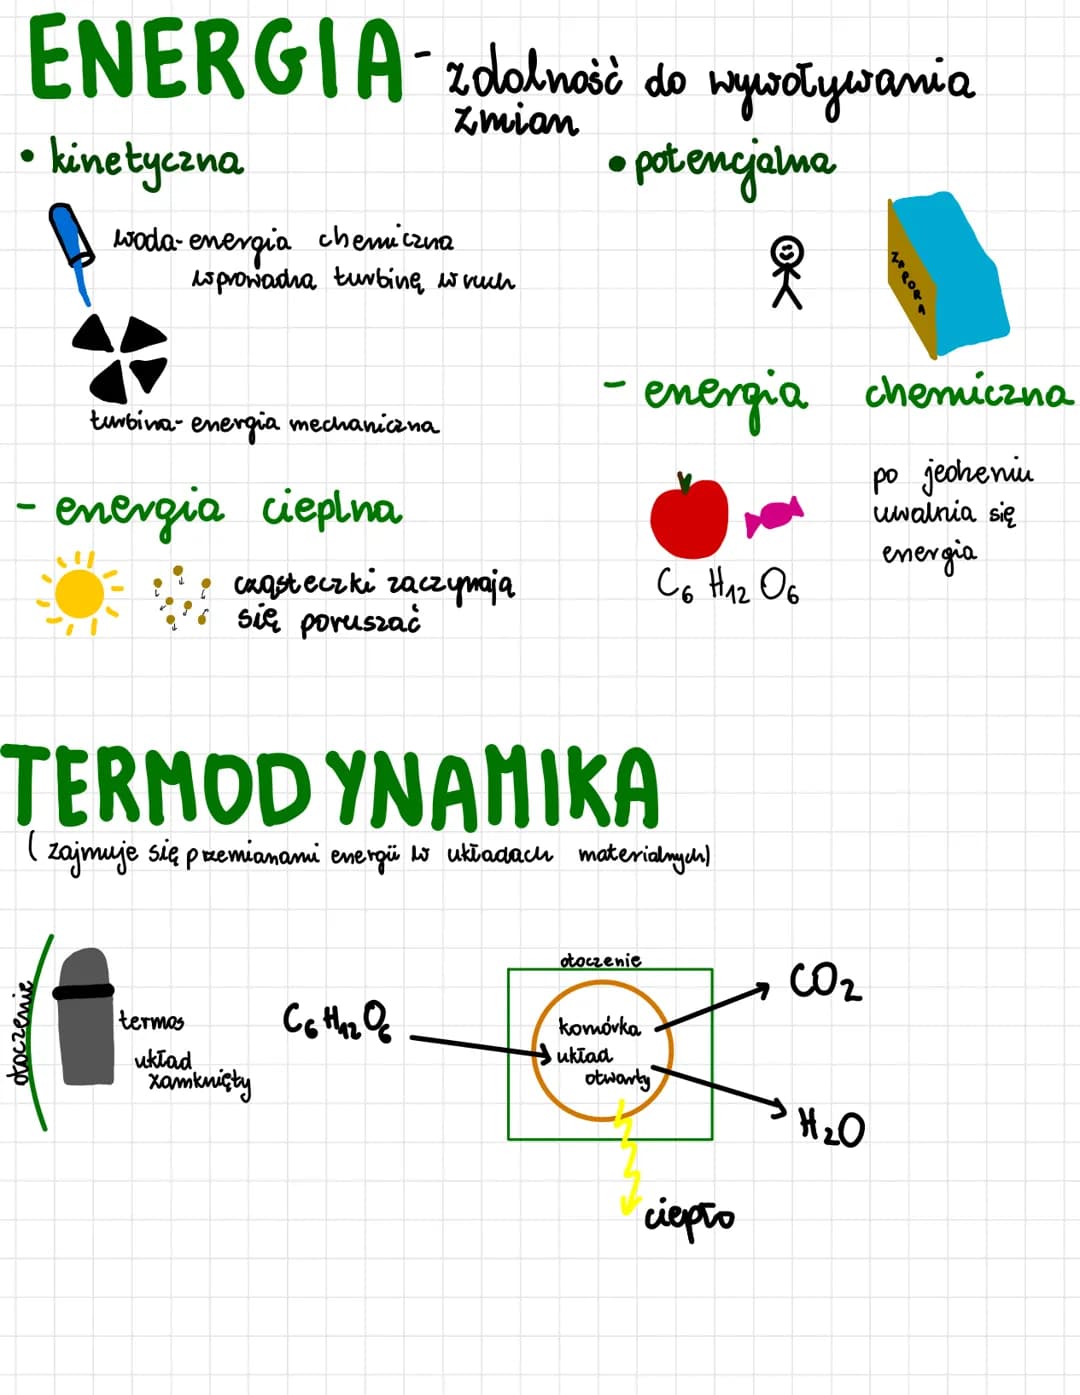 ENERGIA - zdolność do wywoływania
zmian
• kinetyczna
woda - energia chemiczna
wprowadza turbinę w ruch
turbina - energia mechaniczna
- energia cieplna
cząsteczki zaczynają
się poruszać
• potencjalna
ZAPORA
- energia chemiczna
po jedzeniu
uwalnia się
energia
C₆ H₁₂ O₆
TERMODYNAMIKA
( zajmuje się przemianami energii w układach materialnych)
otoczenie
termos
układ
zamknięty
C₆ H₁₂ O₆
otoczenie
komórka
układ
otwarty
CO₂
H₂O
ciepło